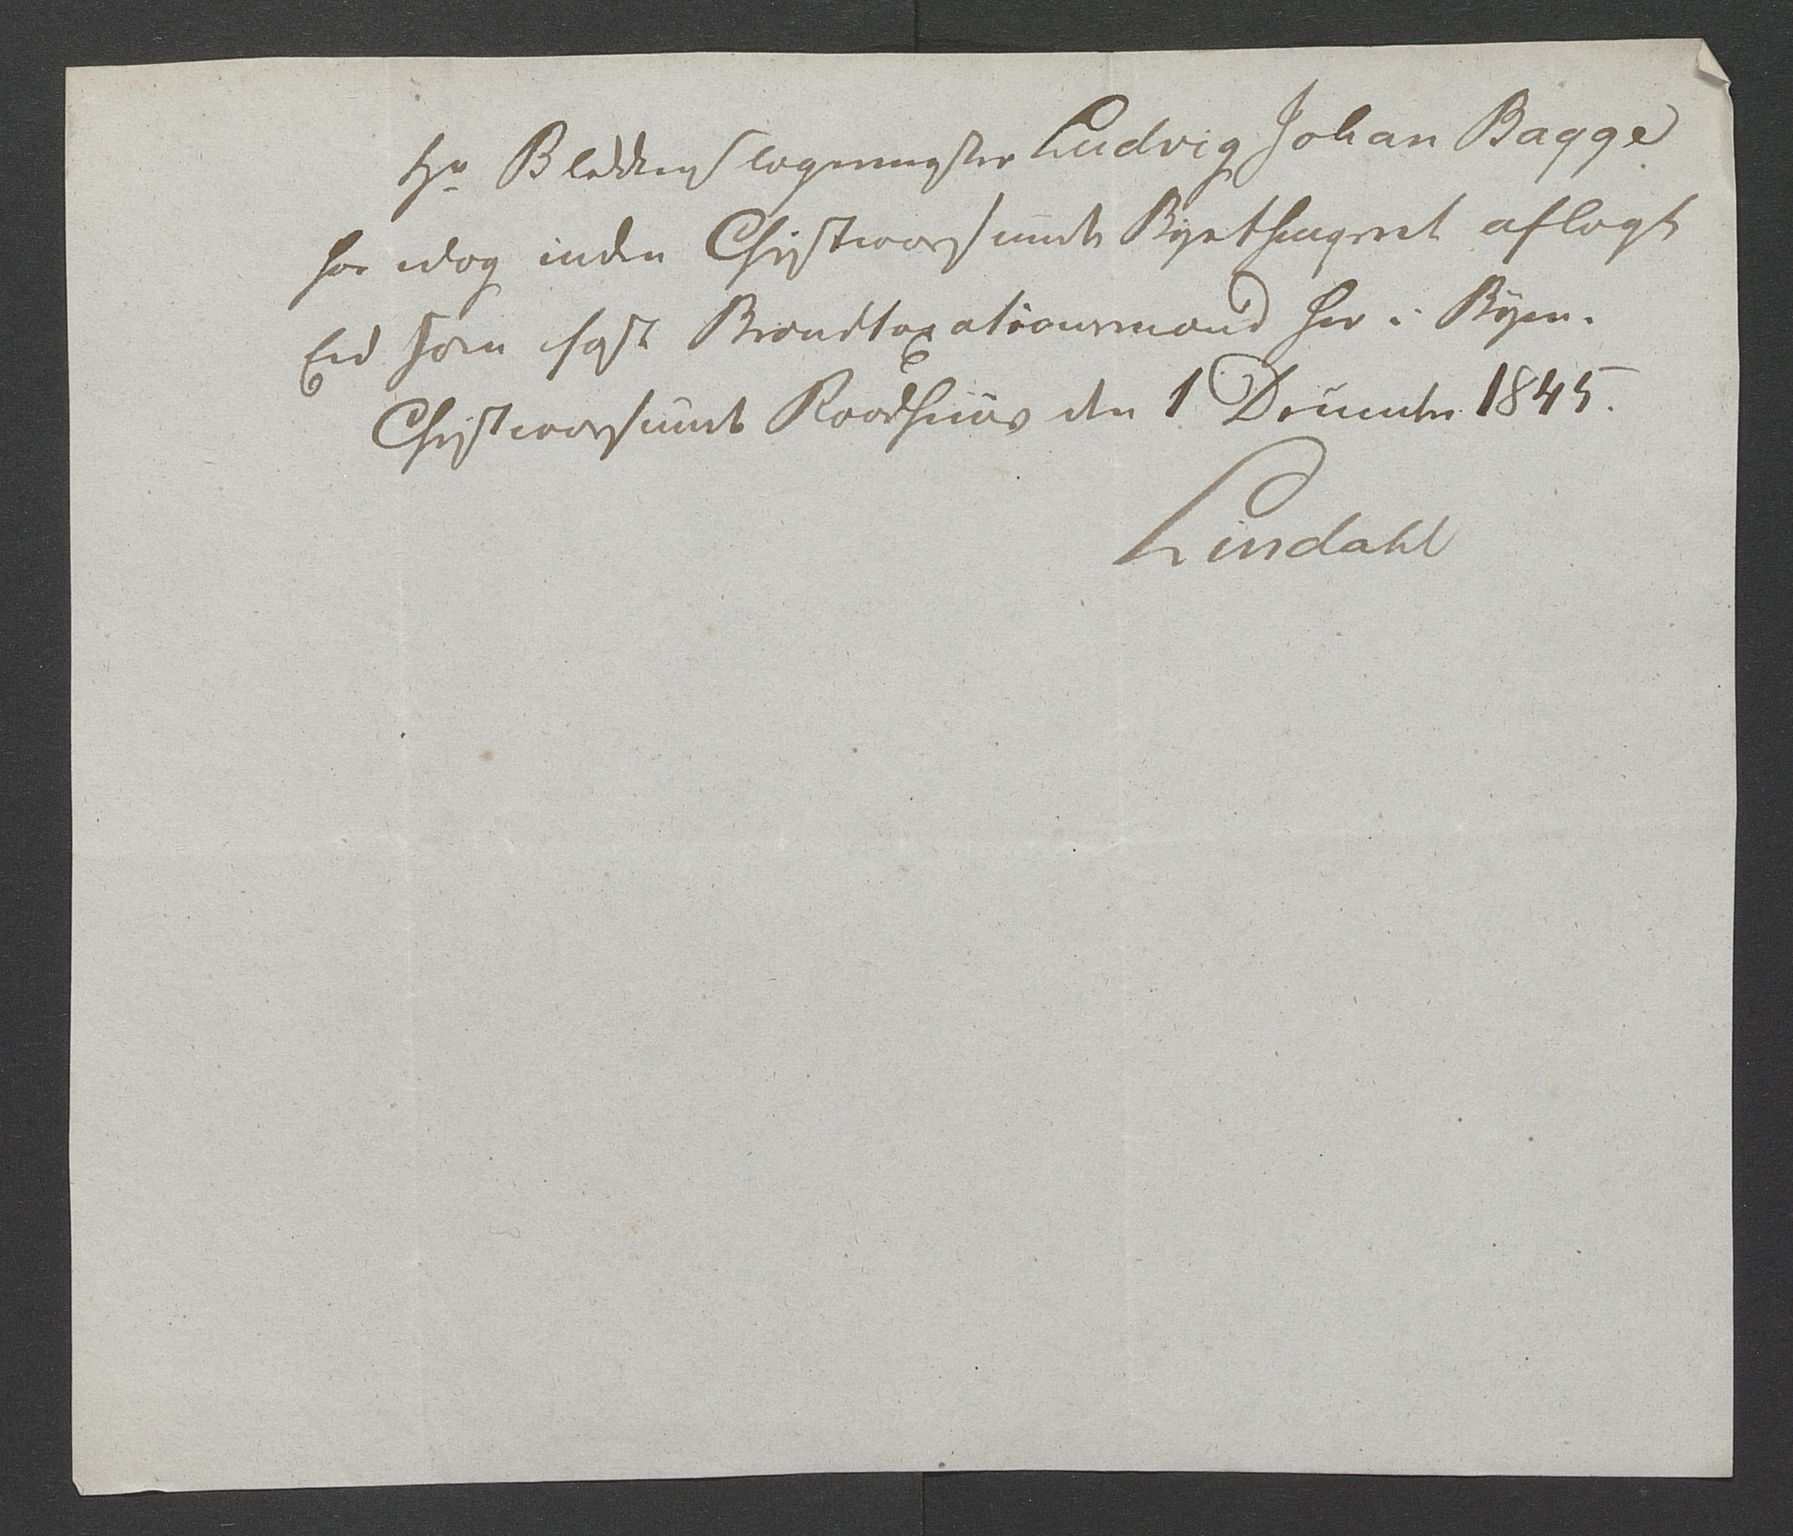 Hr Blikkenslagermester Ludvig Johan Bagge
har idag inden Christianssunds Byethingsret aflagt
Eid som fast Brandtaxationsmand her i Byen.
Christianssunds Raadhuus den 1 December 1845.
Lindahl